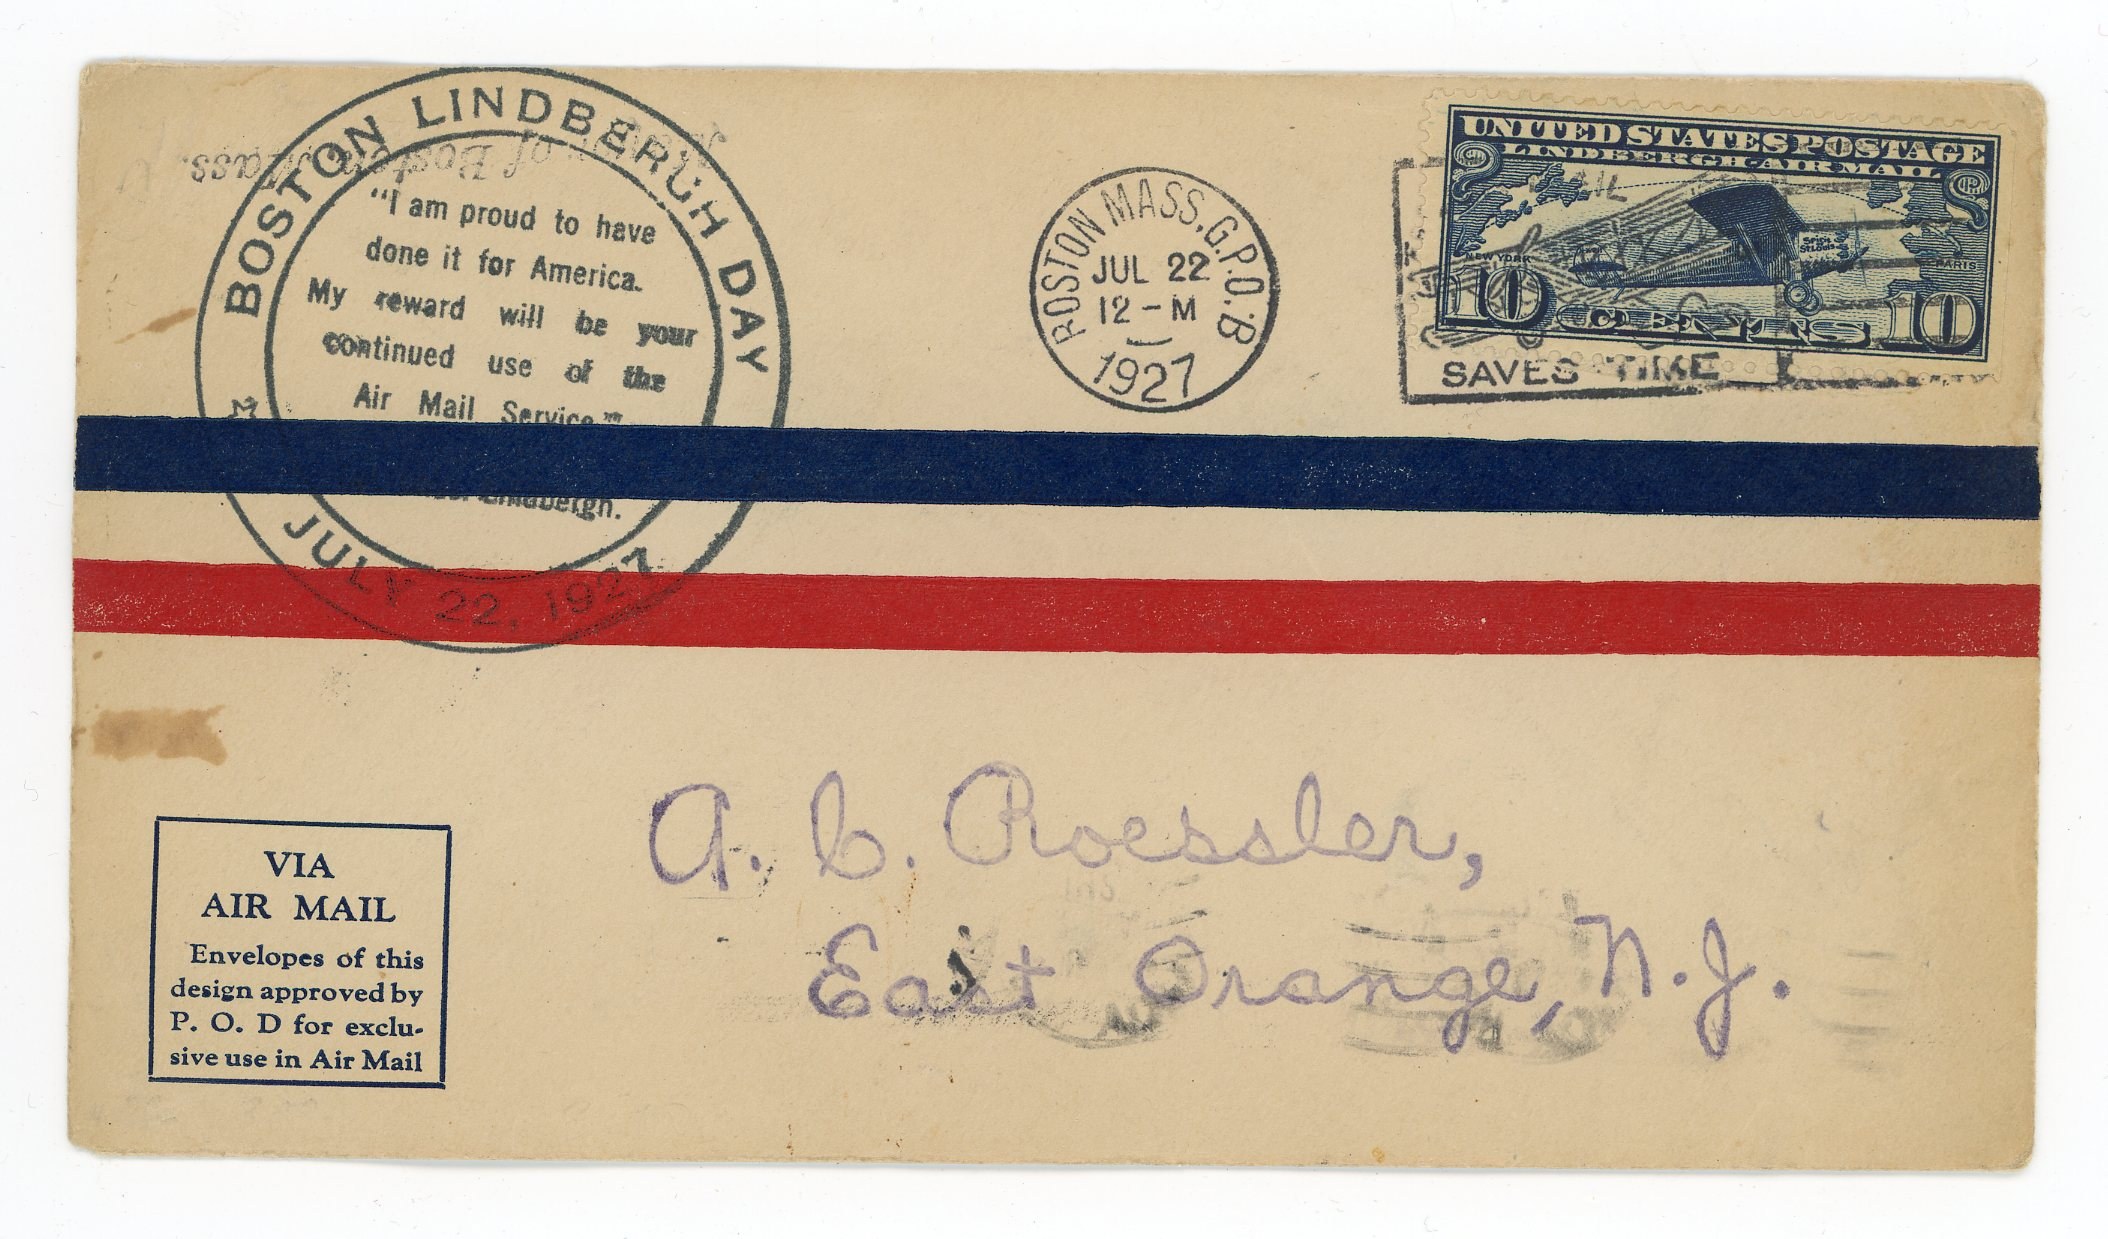 BOSTON LINDBERGH DAY
"I am proud to have
done it for America.
My reward will be your
continued use of the
Air Mail Service."
Lindbergh.
JULY 22, 1927
of Boston, Mass.
BOSTON MASS. G.P.O. B
JUL 22
12-M
1927
UNITED STATES POSTAGE
LINDBERGH AIR MAIL
NEW YORK
PARIS
10 CENTS 10
SAVES TIME
A. C. Roessler,
East Orange, N. J.
VIA
AIR MAIL
Envelopes of this
design approved by
P. O. D for exclu-
sive use in Air Mail